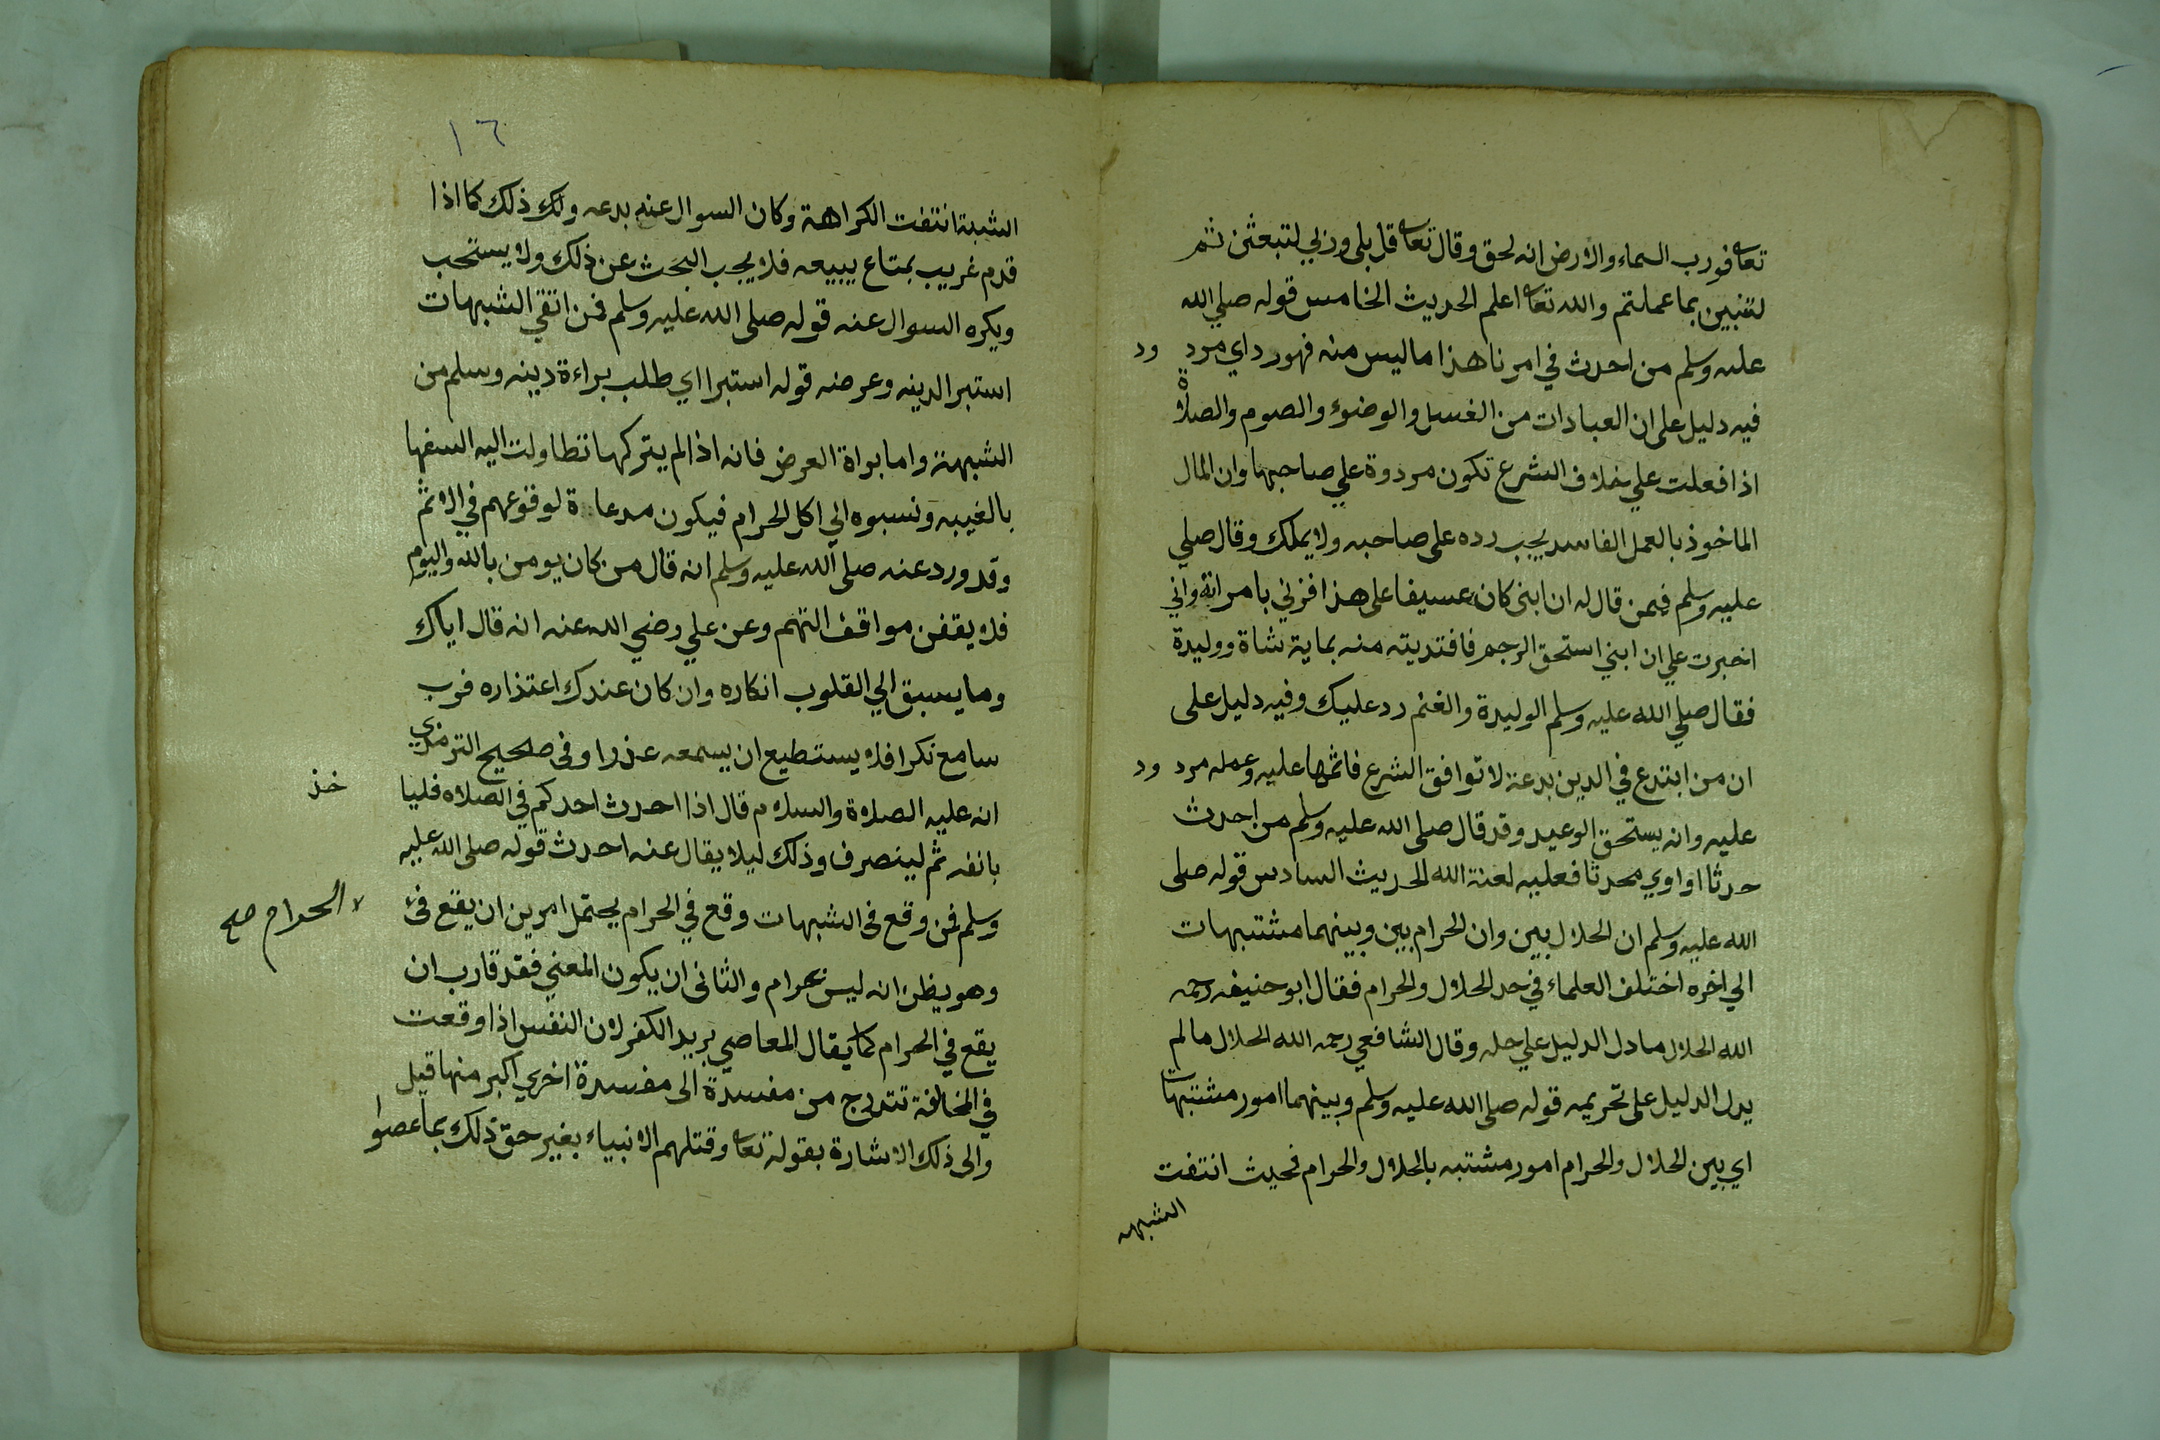 تعا فورب السماء والارض انه لحق وقال تعا قل بلي وربي لتبعثن ثم
لتنبين بما عملتم والله تعا اعلم الحديث الخامس قوله صلي الله
عليه وسلم من احدث في امرنا هذا ما ليس منه فهو رد اي مردود
فيه دليل على ان العبادات من الغسل والوضوء والصوم والصلاة
اذا فعلت علي خلاف الشرع تكون مردوة علي صاحبها وان المال
الماخوذ بالعمل الفاسد يجب رده على صاحبه ولا يملك وقال صلي
عليه وسلم فيمن قال له ان ابنى كان عسيفا على هذا فزني بامراته واني
اخبرت علي ان ابني استحق الرجم فافتديته منه بماية شاة ووليدة
فقال صلي الله عليه وسلم الوليدة والغنم رد عليك وفيه دليل على
ان من ابتدع في الدين بدعة لا توافق الشرع فاثمها عليه وعمله مردود
عليه وانه يستحق الوعيد وقد قال صلى الله عليه وسلم من احدث
حدثا او اوي محدثا فعليه لعنة الله الحديث السادس قوله صلى
الله عليه وسلم ان الحلال بين وان الحرام بين وبينهما مشتبهات
الي اخره اختلف العلماء في حد الحلال والحرام فقال ابو حنيفه رحمه
الله الحلال ما دل الدليل علي حله وقال الشافعي رحمه الله الحلال ما لم
يدل الدليل على تحريمه قوله صلى الله عليه وسلم وبينهما امور مشتبهات
اي بين الحلال والحرام امور مشتبه بالحلال والحرام فحيث انتفت
الشبهه
١٦
الشبة انتفت الكراهة وكان السوال عنه بدعه ولك ذلك كما اذا
قدم غريب بمتاع يبيعه فلا يجب البحث عن ذلك ولا يستحب
ويكره السوال عنه قوله صلى الله عليه وسلم فمن اتقي الشبهات
استبرا لدينه وعرضه قوله استبرا اي طلب براءة دينه وسلم من
الشبهة واما براة العرض فانه اذا لم يتركها تطاولت اليه السفها
بالغيبه ونسبوه الي اكل الحرام فيكون مدعاة لوقوعهم في الاثم
وقد ورد عنه صلى الله عليه وسلم انه قال من كان يومن بالله واليوم
فلا يقفن مواقف التهم وعن علي رضي الله عنه انه قال اياك
وما يسبق الي القلوب انكاره وان كان عندك اعتذاره فرب
سامع نكرا فلا يستطيع ان يسمعه عذرا وفى صحيح الترمذي
انه عليه الصلاة والسلام قال اذا احدث احدكم في الصلاه فليا
خذ
بانفه ثم لينصرف وذلك ليلا يقال عنه احدث قوله صلى الله عليه
وسلم فمن وقع فى الشبهات وقع في الحرام يحتمل امرين ان يقع في
الحرام صح
وهو يظن انه ليس بحرام والثانى ان يكون المعني فقد قارب ان
يقع في الحرام كما يقال المعاصي بريد الكفر لان النفس اذا وقعت
في المخالفة تتدرج من مفسدة الى مفسدة اخري اكبر منها قيل
والى ذلك الاشارة بقوله تعا وقتلهم الانبياء بغير حق ذلك بما عصوا